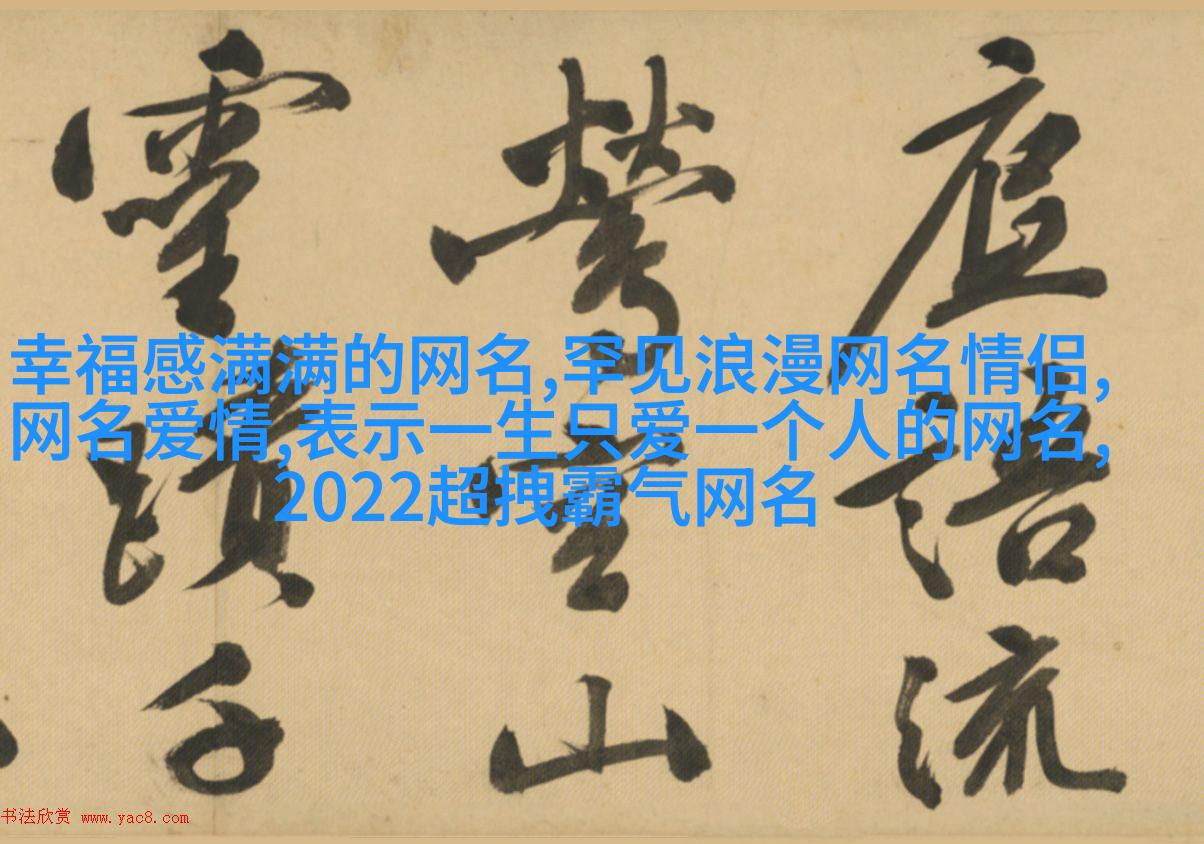 幸福感满满的网名,罕见浪漫网名情侣,
网名爱情,表示一生只爱一个人的网名,
2022超拽霸气网名
語流
山
蹟千
书法欣赏 www.yac8.com